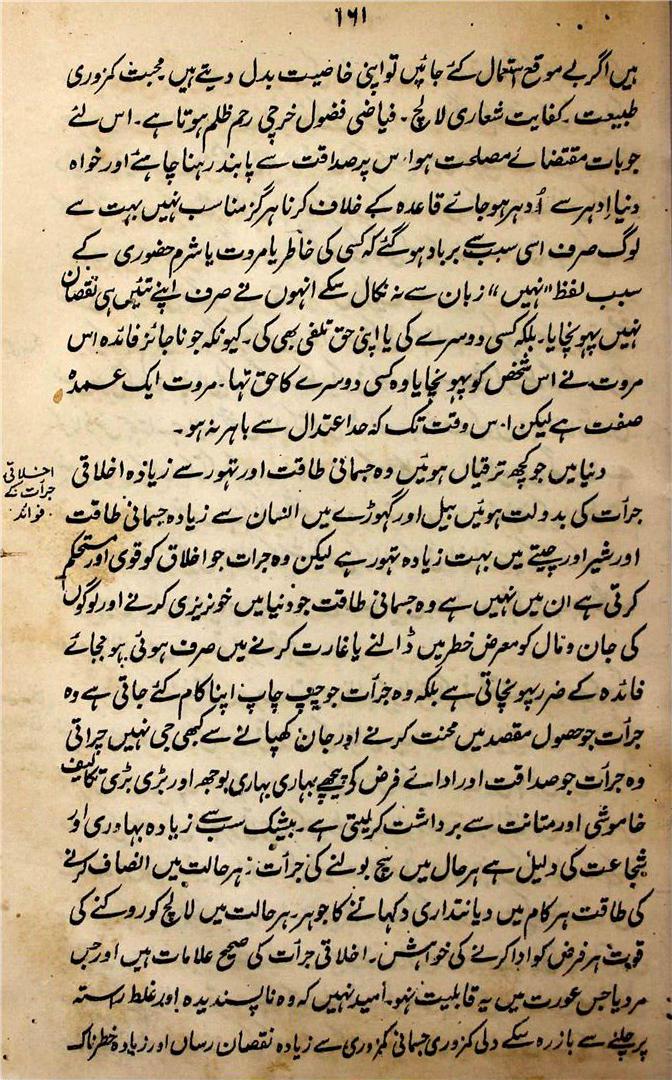 ۱۶۱
ہیں اگر بے موقع استعمال کئے جائیں تو اپنی خاصیت بدل دیتے ہیں۔ محبت کمزوری
طبیعت۔ کفایت شعاری لالچ۔ فیاضی فضول خرچی رحم ظلم ہوتا ہے۔ اس لئے
جو بات مقتضائے مصلحت ہو اوس پر صداقت سے پابند رہنا چاہئے اور خواہ
دنیا اِدہر سے اُدہر ہو جائے قاعدہ کے خلاف کرنا ہرگز مناسب نہیں بہت سے
لوگ صرف اسی سبب سے برباد ہو گئے کہ کسی کی خاطر یا مروت یا شرم حضوری کے
سبب لفظ "نہیں" زبان سے نہ نکال سکے انہوں نے صرف اپنے تئیں ہی نقصان
نہیں پہونچایا۔ بلکہ کسی دوسرے کی یا اپنی حق تلفی بھی کی۔ کیونکہ جو ناجائز فائدہ اس
مروت نے اس شخص کو پہونچایا وہ کسی دوسرے کا حق تہا۔ مروت ایک عمدہ
صفت ہے لیکن اوس وقت تک کہ حد اعتدال سے باہر نہ ہو۔
اخلاقی
جرأت کے
فوائد۔
دنیا میں جو کچھ ترقیاں ہوئیں وہ جسمانی طاقت اور تہور سے زیادہ اخلاقی
جرأت کی بدولت ہوئیں بیل اور گہوڑے میں انسان سے زیادہ جسمانی طاقت
اور شیر اور چیتے میں بہت زیادہ تہور ہے لیکن وہ جرات جو اخلاق کو قوی اور مستحکم
کرتی ہے ان میں نہیں ہے وہ جسمانی طاقت جو دنیا میں خونریزی کرنے اور لوگوں
کی جان و مال کو معرض خطر میں ڈالنے یا غارت کرنے میں صرف ہوئی ہو بجائے
فائدہ کے ضرر پہونچاتی ہے بلکہ وہ جرأت جو چپ چاپ اپنا کام کئے جاتی ہے وہ
جرأت جو حصول مقصد میں محنت کرنے اور جان کھپانے سے کبھی جی نہیں چراتی
وہ جرأت جو صداقت اور ادائے فرض کے پیچھے بہاری بہاری بوجھ اور بڑی بڑی تکالیف
خاموشی اور متانت سے برداشت کر لیتی ہے۔ بیشک سب سے زیادہ بہادری اور
شجاعت کی دلیل ہے ہر حال میں سچ بولنے کی جرأت۔ ہر حالت میں انصاف کرنے
کی طاقت ہر کام میں دیانتداری دکہانے کا جوہر۔ ہر حالت میں لالچ کو روکنے کی
قوت ہر فرض کو ادا کرنے کی خواہش۔ اخلاقی جرأت کی صحیح علامات ہیں اور جس
مرد یا جس عورت میں یہ قابلیت نہو۔ امید نہیں کہ وہ ناپسندیدہ اور غلط راستہ
پر چلنے سے باز رہ سکے دلی کمزوری جسمانی کمزوری سے زیادہ نقصان رساں اور زیادہ خطرناک